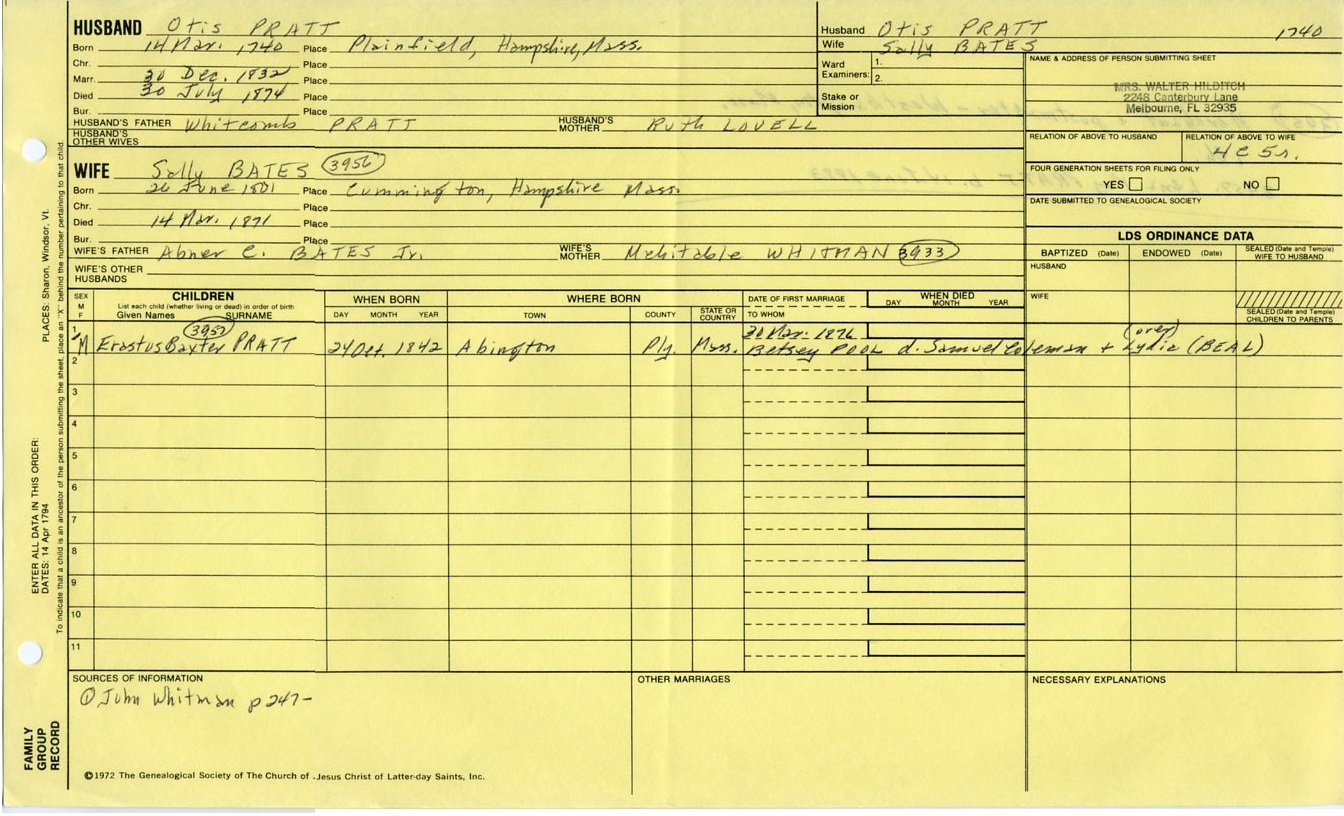 HUSBAND Otis PRATT
Born 14 Mar. 1740 Place Plainfield, Hampshire, Mass.
Chr. Place
Marr. 30 Dec. 1832 Place
Died 30 July 1874 Place
Bur. Place
HUSBAND'S FATHER Whitcomb PRATT HUSBAND'S MOTHER Ruth LOVELL
HUSBAND'S OTHER WIVES
WIFE Sally BATES 3956
Born 26 June 1801 Place Cummington, Hampshire Mass.
Chr. Place
Died 14 Mar. 1871 Place
Bur. Place
WIFE'S FATHER Abner C. BATES Jr. WIFE'S MOTHER Mehitable WHITMAN 3933
WIFE'S OTHER HUSBANDS
Husband Otis PRATT 1740
Wife Sally BATES
Ward Examiners: 1. 2.
Stake or Mission
NAME & ADDRESS OF PERSON SUBMITTING SHEET
MRS. WALTER HILDITCH
2248 Canterbury Lane
Melbourne, FL 32935
RELATION OF ABOVE TO HUSBAND RELATION OF ABOVE TO WIFE
4C 5r.
FOUR GENERATION SHEETS FOR FILING ONLY
YES NO
DATE SUBMITTED TO GENEALOGICAL SOCIETY
LDS ORDINANCE DATA
BAPTIZED (Date) ENDOWED (Date) SEALED (Date and Temple) WIFE TO HUSBAND
HUSBAND
WIFE
SEALED (Date and Temple) CHILDREN TO PARENTS
SEX M F CHILDREN List each child (whether living or dead) in order of birth Given Names SURNAME
WHEN BORN DAY MONTH YEAR
WHERE BORN TOWN COUNTY STATE OR COUNTRY
DATE OF FIRST MARRIAGE TO WHOM
WHEN DIED DAY MONTH YEAR
3957 30 Mar. 1876 (over)
1 M Erastus Baxter PRATT 24 Oct. 1842 Abington Ply. Mass. Betsey POOL d. Samuel Coleman + Lydia (BEAL)
2
3
4
5
6
7
8
9
10
11
SOURCES OF INFORMATION OTHER MARRIAGES NECESSARY EXPLANATIONS
① John Whitman p 247-
©1972 The Genealogical Society of The Church of Jesus Christ of Latter-day Saints, Inc.
FAMILY GROUP RECORD
ENTER ALL DATA IN THIS ORDER:
DATES: 14 Apr 1794 PLACES: Sharon, Windsor, Vt.
To indicate that a child is an ancestor of the person submitting the sheet, place an "X" behind the number pertaining to that child.